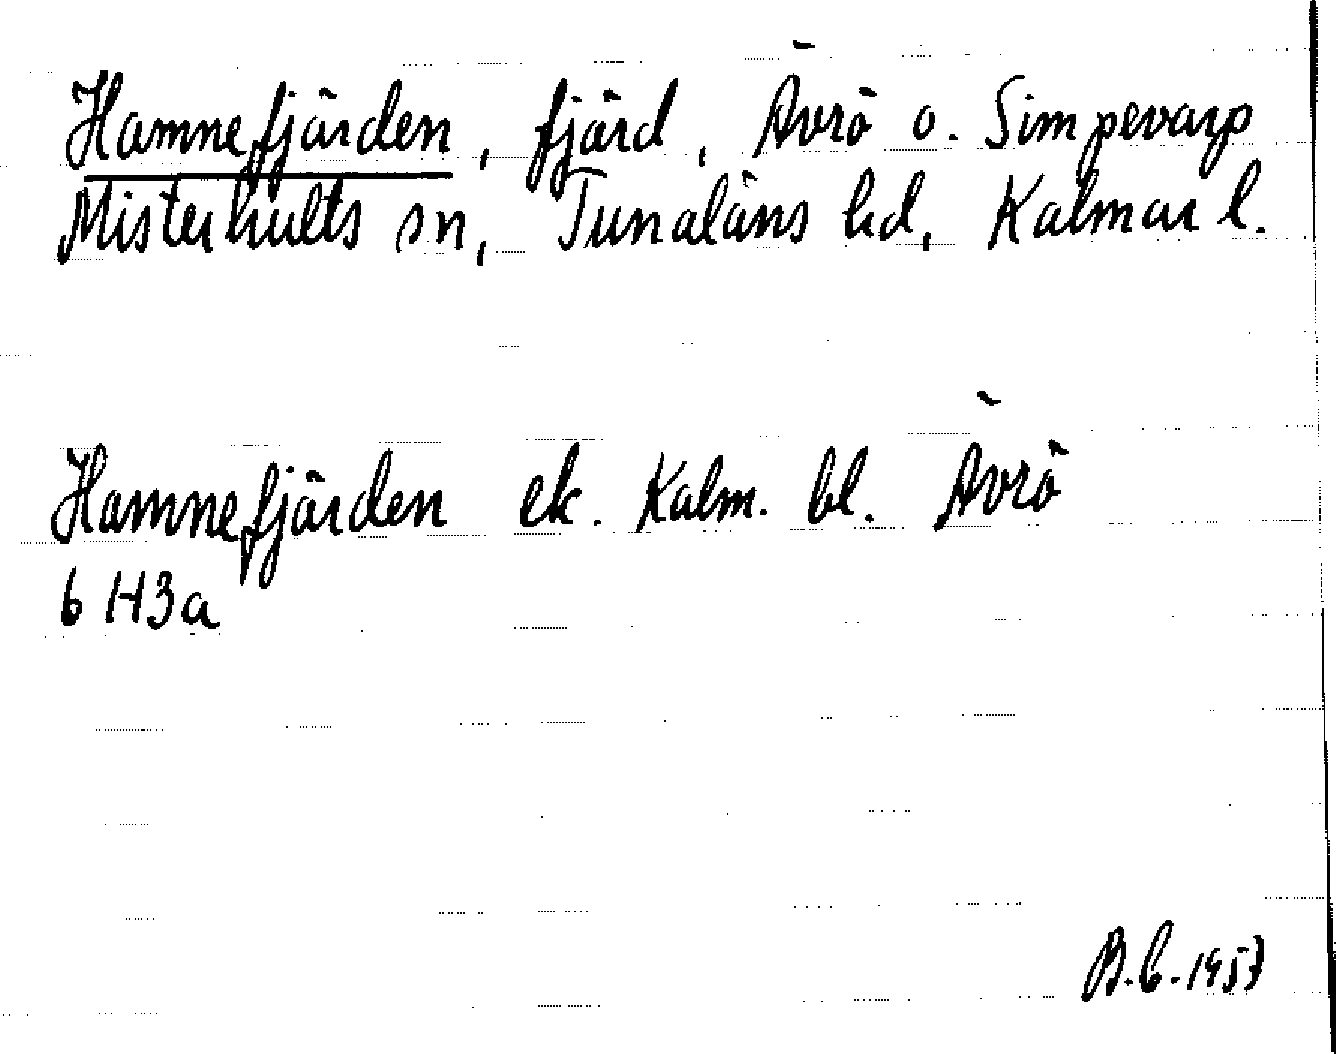 Hamnefjärden, fjärd, Ävrö o. Simpevarp
Misterhults sn, Tunaläns hd, Kalmar l.
Hamnefjärden ek. Kalm. bl. Ävrö
6 H3a
B.G. 1957